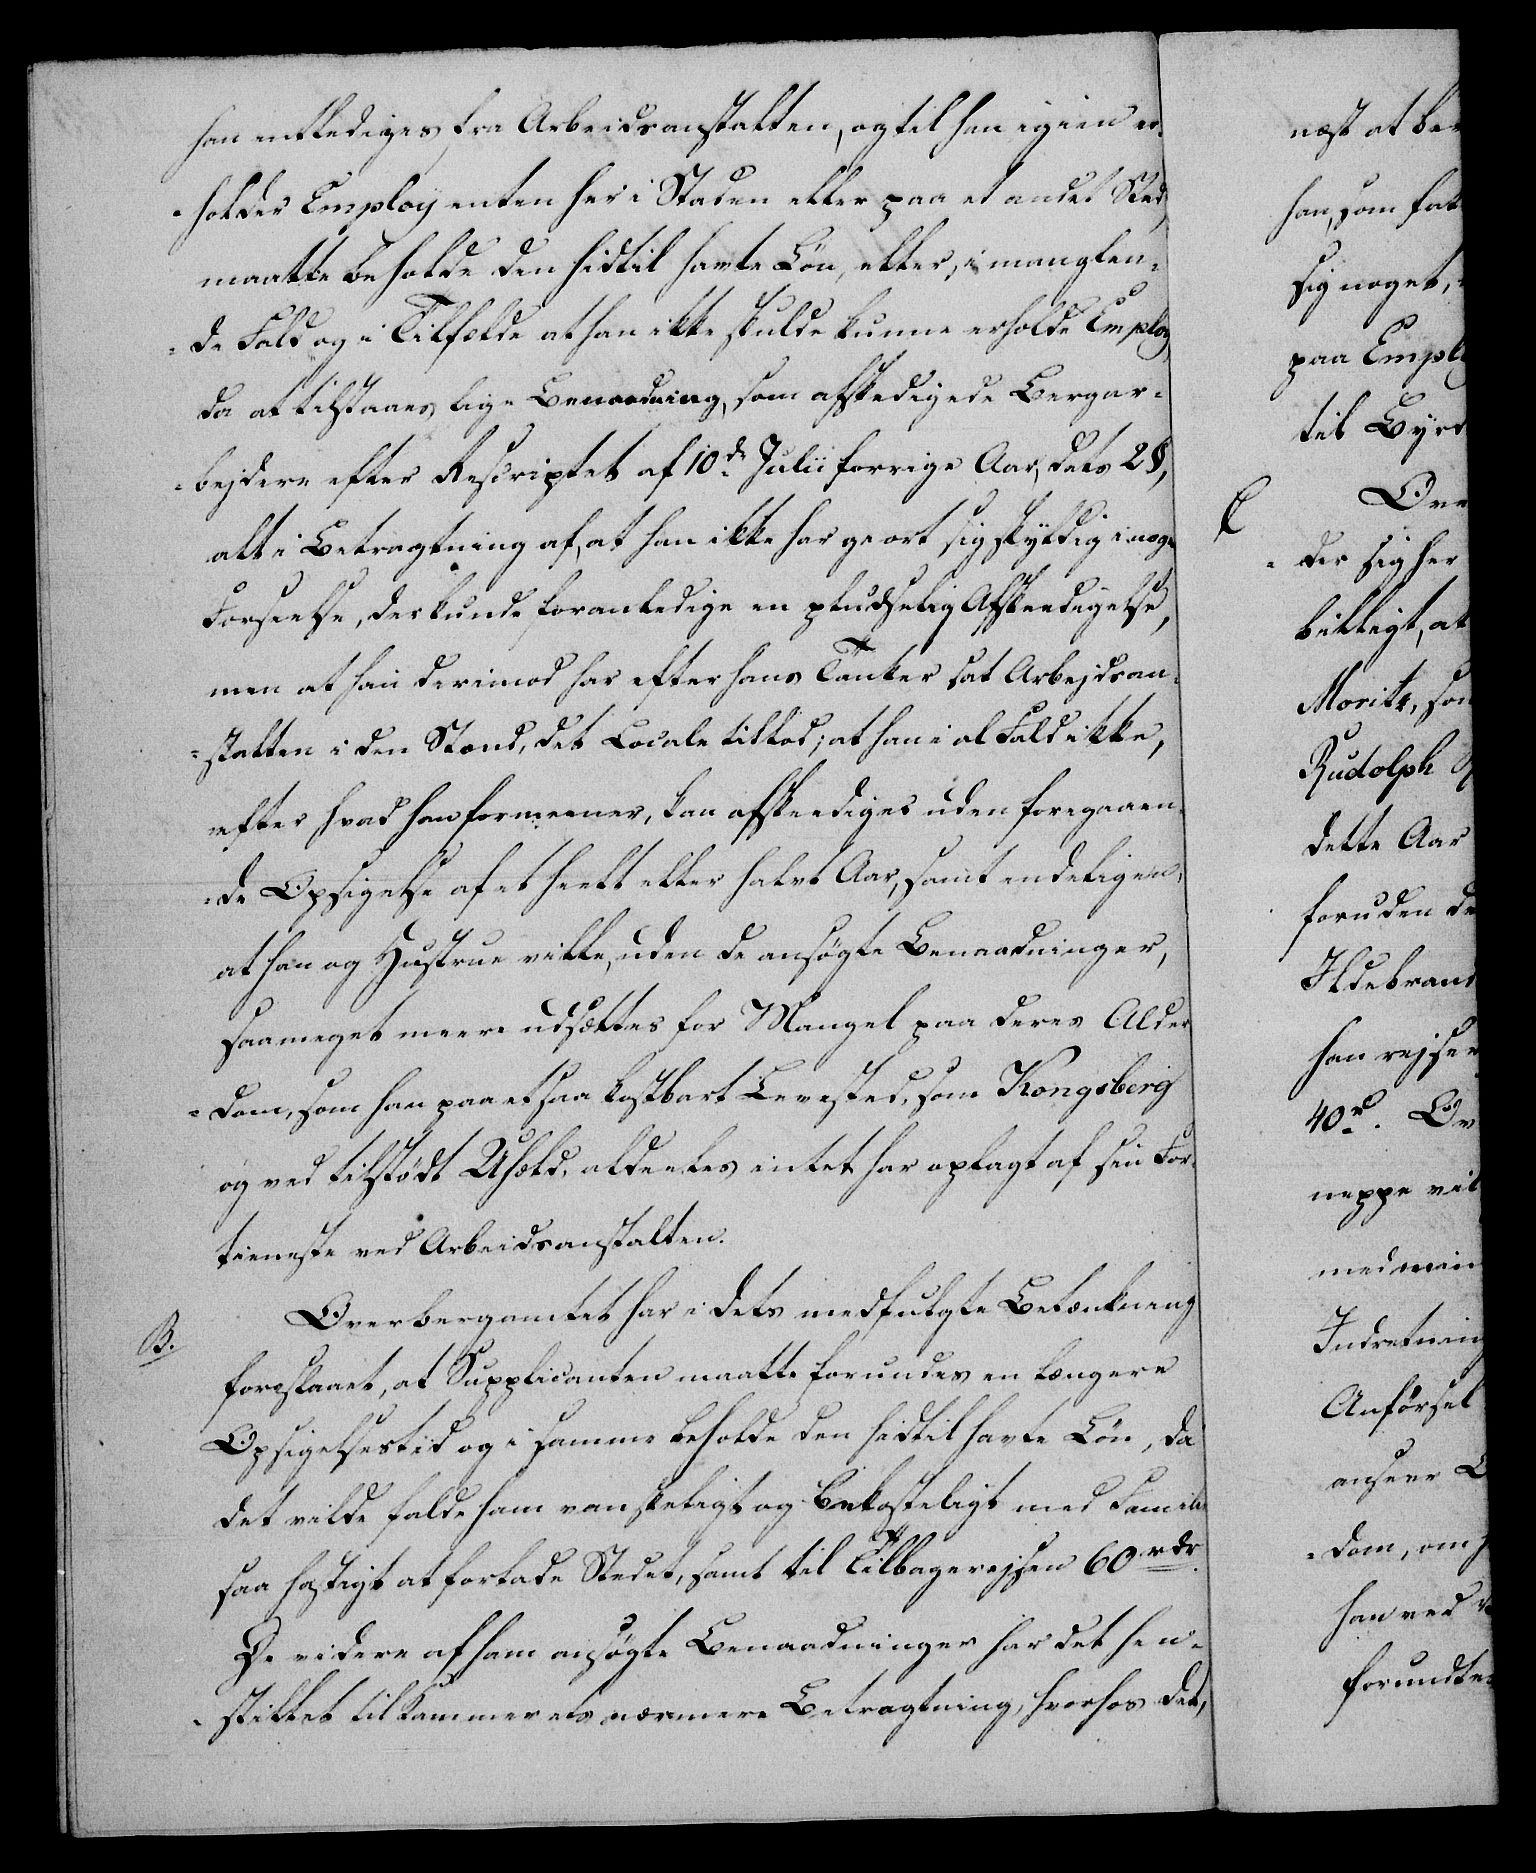 han entlediges fra Arbeidsanstalten, og til han igien er-
-holder Employ enten her i Staden eller paa et andet Sted,
maatte beholde den hidtil havte Lön, eller, i manglen-
-de Fald og i Tilfælde at han ikke skulde kunne erholde Employ
da at tilstaaes lige Benaadning, som afskedigede Bergar-
-bejdere efter Rescriptet af 10de Julii forrige Aar, dets 2 §,
alt i Betragtning af, at han ikke har giort sig skyldig i nogen
Forseelse, der kunde foranledige en pludselig Afskeedigelse,
men at han derimod har efter hans Tanker sat Arbejdsan-
-stalten i den Stand, det Locale tillod; at han i al Fald ikke,
efter hvad han formeener, kan afskeediges uden foregaaen-
-de Opsigelse af et heelt eller halvt Aar, samt endeligen,
at han og Hustrue ville, uden de ansögte Benaadninger,
saameget meere udsættes for Mangel paa deres Alder
-dom, som han paa et saa kostbart Levested, som Kongsberg
og ved tilstödt Uheld, aldeeles intet har oplagt af sin For-
tieneste ved Arbeidsanstalten.
B. Overbergamtet har i dets medfulgte Betænkning
foreslaaet, at Supplicanten maatte forundes en længere
Opsigelsestid og i samme beholde den hidtil havte Lön, da
det vilde falde ham vanskeligt og bekosteligt med Familie
saa hastigt at forlade Stedet, samt til Tilbagerejsen 60 rdr.
De videre af ham ansögte Benaadninger har det hen-
-stillet til Kammerets nærmere Betragtning, hvorhos det,
næst at
han, som
sig noget,
paa
til
C
-der sig her
billigt, at
Moritz,
Rudolph
dette Aar
foruden
Ildebrand
han rejser
40 rd.
neppe
med
Indretning
Anförsel
anseer
-dom, om
han ved
forundte